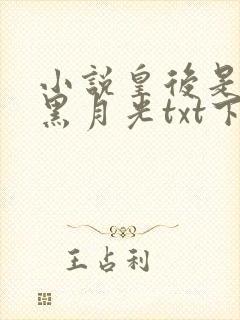 小説皇後是
黑月光txt下
王占利